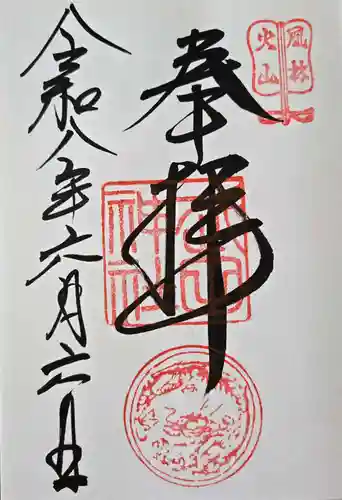 風林
火山
奉拝
神社
令和八年六月六日